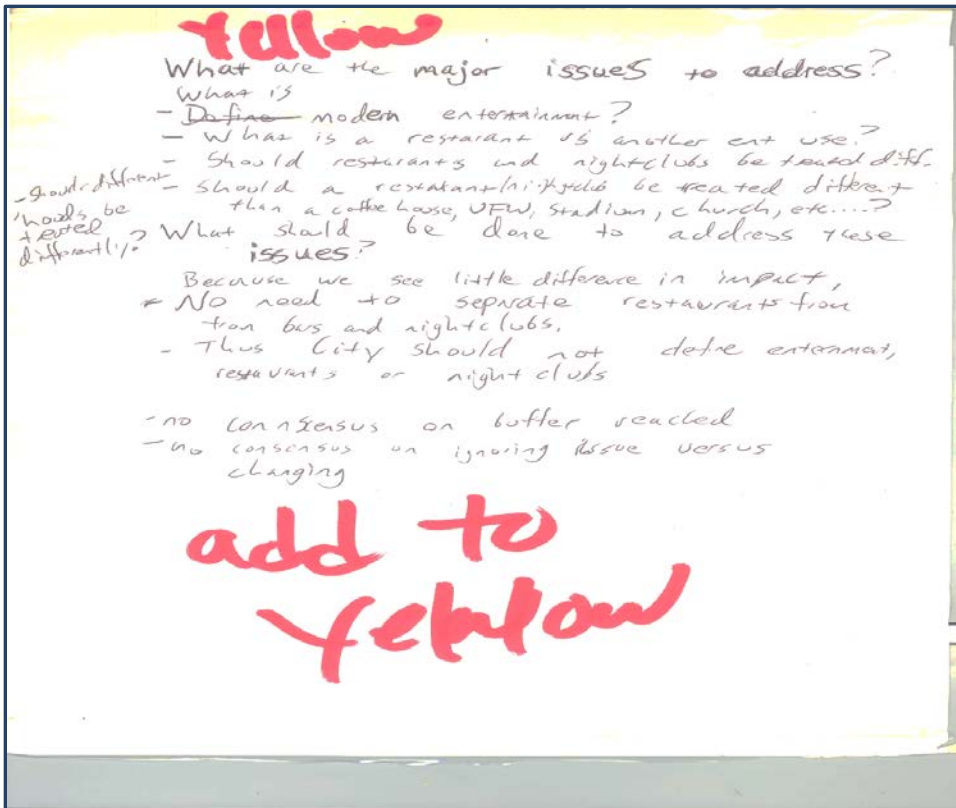 Yellow
What are the major issues to address?
What is
- Define modern entertainment?
- What is a restarant vs another ent use?
- Should restaurants and nightclubs be treated diff.
- Should a restarant/nightclub be treated different
than a coffee house, VFW, Stadium, church, etc....?
- Should different
'hoods be
treated
differently?
What should be done to address these
issues?
Because we see little difference in impact,
* No need to separate restaurants from
from bars and nightclubs.
- Thus City should not define
restaurants or nightclubs
- no connsensus on buffer reached
- no consensus on ignoring issue versus
changing
add to
Yellow